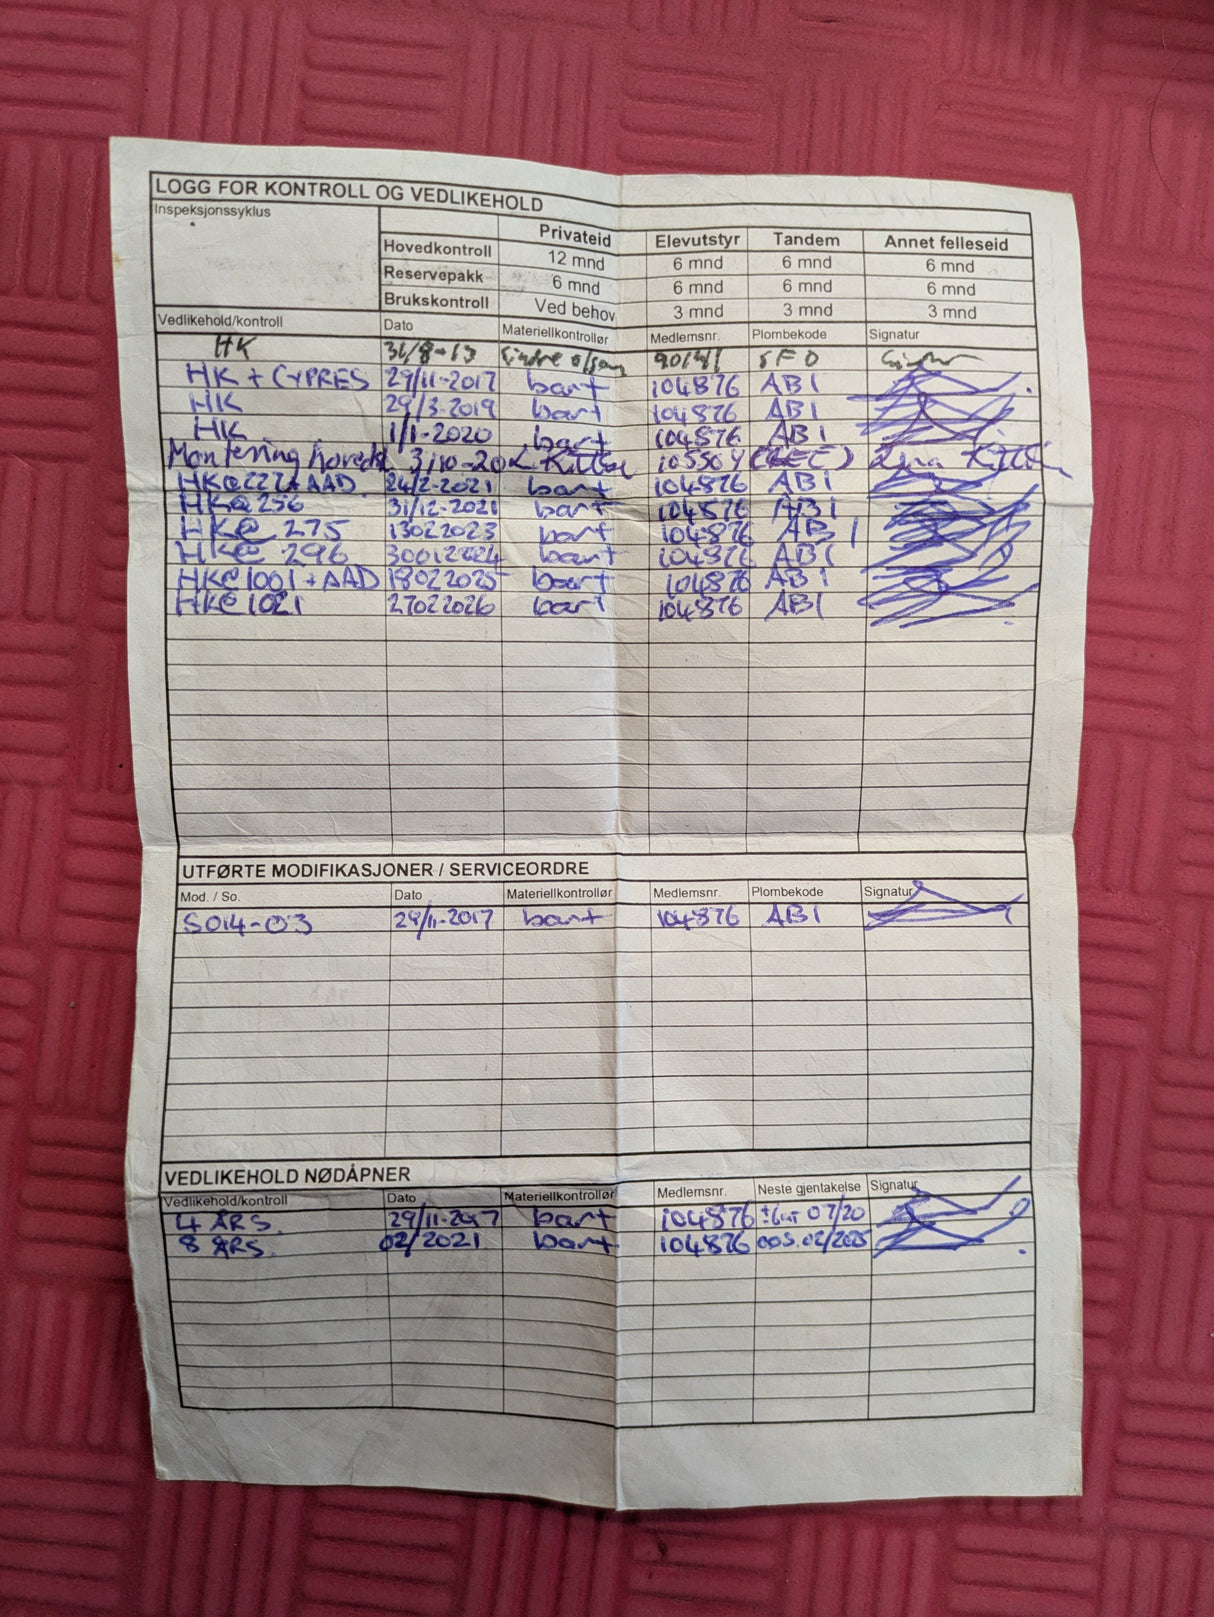 LOGG FOR KONTROLL OG VEDLIKEHOLD
Inspeksjonssyklus Privateid Elevutstyr Tandem Annet felleseid
Hovedkontroll 12 mnd 6 mnd 6 mnd 6 mnd
Reservepakk 6 mnd 6 mnd 6 mnd 6 mnd
Brukskontroll Ved behov 3 mnd 3 mnd 3 mnd
Vedlikehold/kontroll Dato Materiellkontrollør Medlemsnr. Plombekode Signatur
HK 31/8-13 Sindre SFO
HK + CYPRES 29/11-2017 bart 104876 AB1
HK 29/3-2019 bart 104876 AB1
HK 1/1-2020 bart 104876 AB1
Montering hovedsk. 3/10-20 105504
HK@222+AAD 24/2-2021 bart 104876 AB1
HK@256 31/12-2021 bart 104876 AB1
HK@ 275 13022023 bart 104876 AB1
HK@ 296 30012024 bart 104876 AB1
HK@1001+AAD 18022025 bart 104876 AB1
HK@1021 27022026 bart 104876 AB1
UTFØRTE MODIFIKASJONER / SERVICEORDRE
Mod. / So. Dato Materiellkontrollør Medlemsnr. Plombekode Signatur
SO14-03 29/11-2017 bart 104876 AB1
VEDLIKEHOLD NØDÅPNER
Vedlikehold/kontroll Dato Materiellkontrollør Medlemsnr. Neste gjentakelse Signatur
4 ÅRS. 29/11-2017 bart 104876 07/20
8 ÅRS. 02/2021 bart 104876 02/2025